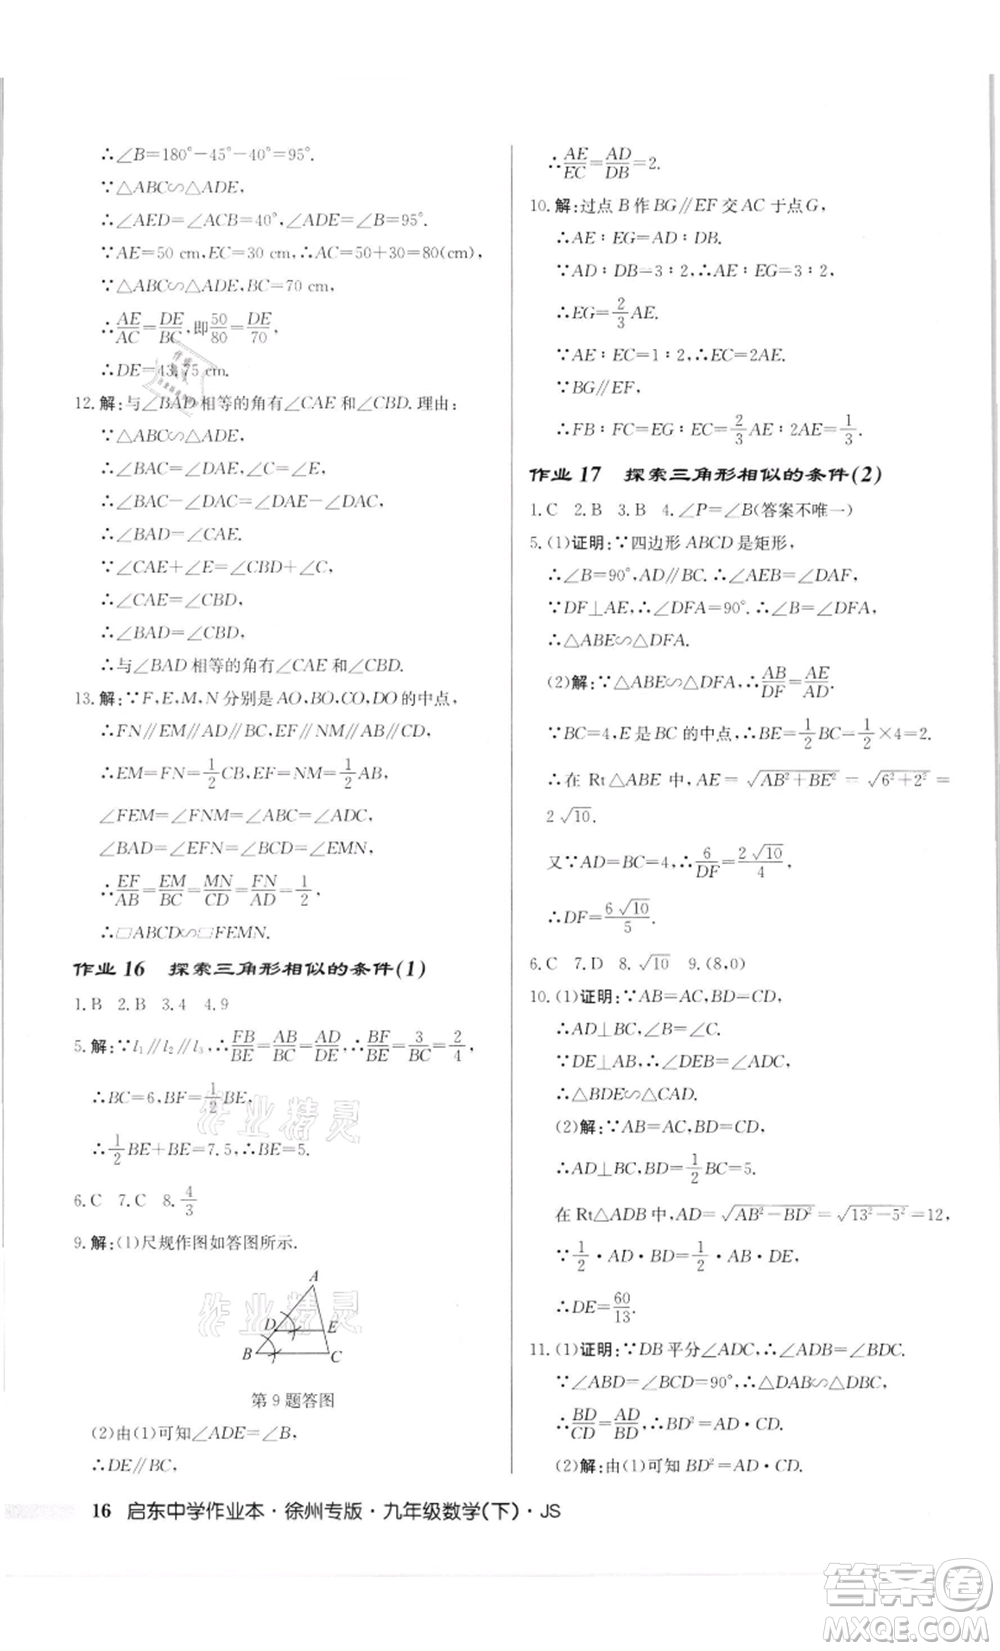 ∴∠B=180°-45°-40°=95°.
∵△ABC∽△ADE,
∴∠AED=∠ACB=40°,∠ADE=∠B=95°.
∵AE=50 cm,EC=30 cm,∴AC=50+30=80(cm).
∵△ABC∽△ADE,BC=70 cm,
∴AE/AC=DE/BC,即50/80=DE/70,
∴DE=43.75 cm.
12.解:与∠BAD相等的角有∠CAE和∠CBD.理由:
∵△ABC∽△ADE,
∴∠BAC=∠DAE,∠C=∠E.
∴∠BAC-∠DAC=∠DAE-∠DAC,
∴∠BAD=∠CAE.
∵∠CAE+∠E=∠CBD+∠C,
∴∠CAE=∠CBD,
∴∠BAD=∠CBD,
∴与∠BAD相等的角有∠CAE和∠CBD.
13.解:∵F,E,M,N分别是AO,BO,CO,DO的中点,
∴FN∥EM∥AD∥BC,EF∥MN∥CD∥AB,
∴EM=FN=1/2CB,EF=MN=1/2AB,
∠FEM=∠FNM=∠ABC=∠ADC,
∠BAD=∠EFN=∠EMN=∠BCD,
∴EF/AB=EM/BC=MN/CD=FN/AD=1/2,
∴▱ABCD∽▱FEMN.
作业 16 探索三角形相似的条件(1)
1.B 2.B 3.4 4.9
5.解:∵l₁∥l₂∥l₃,∴FB/BE=AB/BC=AD/DE,∴BF/BE=3/BC=2/4,
∴BC=6,BF=1/2BE,
∴1/2BE+BE=7.5,∴BE=5.
6.C 7.C 8.4/3
9.解:(1)尺规作图如答图所示.
A
D E
B C
第9题答图
(2)由(1)可知∠ADE=∠B,
∴DE∥BC,
∴AE/EC=AD/DB=2.
10.解:过点B作BG∥EF交AC于点G,
∴AE∶EG=AD∶DB.
∵AD∶DB=3∶2,∴AE∶EG=3∶2,
∴EG=2/3AE.
∵AE∶EC=1∶2,∴EC=2AE.
∵BG∥EF,
∴FB∶FC=EG∶EC=2/3AE∶2AE=1/3.
作业 17 探索三角形相似的条件(2)
1.C 2.B 3.B 4.∠P=∠B(答案不唯一)
5.(1)证明:∵四边形ABCD是矩形,
∴∠B=90°,AD∥BC.∴∠AEB=∠DAF.
∵DF⊥AE,∴∠DFA=90°.∴∠B=∠DFA,
∴△ABE∽△DFA.
(2)解:∵△ABE∽△DFA,∴AB/DF=AE/AD.
∵BC=4,E是BC的中点,∴BE=1/2BC=1/2×4=2.
∴在Rt△ABE中,AE=√(AB²+BE²)=√(6²+2²)=
2√10.
又∵AD=BC=4,∴6/DF=2√10/4,
∴DF=6√10/5.
6.C 7.D 8.√10 9.(8,0)
10.(1)证明:∵AB=AC,BD=CD,
∴AD⊥BC,∠B=∠C.
∵DE⊥AB,∴∠DEB=∠ADC,
∴△BDE∽△CAD.
(2)解:∵AB=AC,BD=CD,
∴AD⊥BC,BD=1/2BC=5.
在Rt△ADB中,AD=√(AB²-BD²)=√(13²-5²)=12,
∵1/2·AD·BD=1/2·AB·DE,
∴DE=60/13.
11.(1)证明:∵DB平分∠ADC,∴∠ADB=∠BDC.
∵∠ABD=∠BCD=90°,∴△DAB∽△DBC,
∴BD/CD=AD/BD,∴BD²=AD·CD.
(2)解:由(1)可知BD²=AD·CD.
16 启东中学作业本·徐州专版·九年级数学(下)·JS
作业精灵
作业精灵
答案卷
MXQE.COM